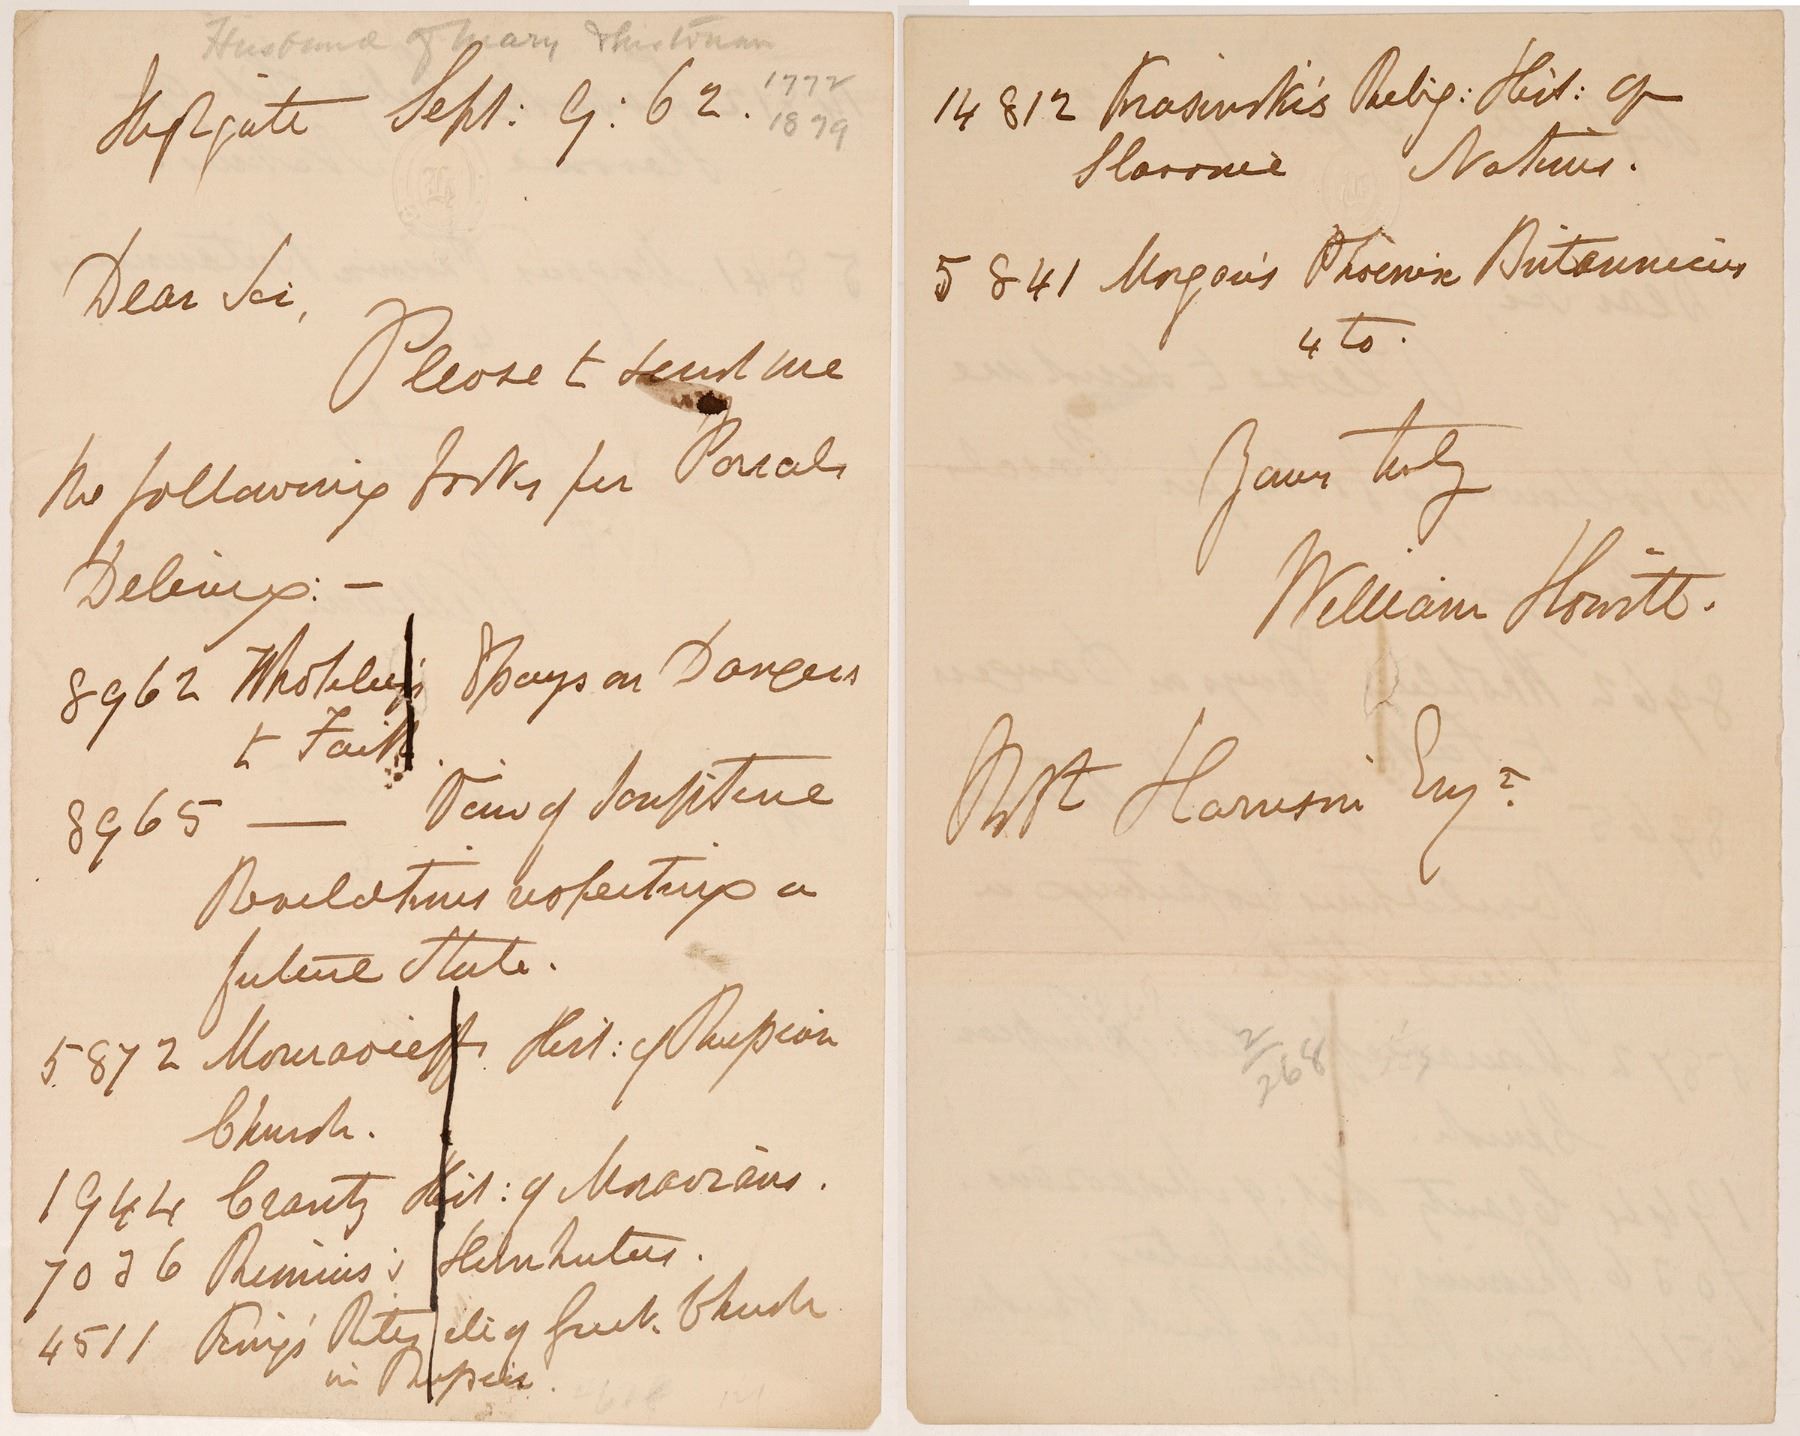 Husband of Mary & historian
Highgate Sept: 9: 62.
1772
1879
Dear Sir,
Please to send me
the following books per Parcels
Delivery: –
8962 Whateley's Essays on Dangers
to Faith.
8965 —— View of Scripture
Revelations respecting a
future State.
5872 Mouravieff's Hist: of Russian
Church.
1944 Crantz Hist: of Moravians.
7036 Rimius's Hernhuters.
4511 King's Rites &c of Greek Church
in Russia.
14812 Krasinski's Relig: Hist: of
Slavonic Nations.
5841 Morgan's Phoenix Britannicus
4to.
Yours truly
William Howitt.
Robt Harrison Esqr.
2/268